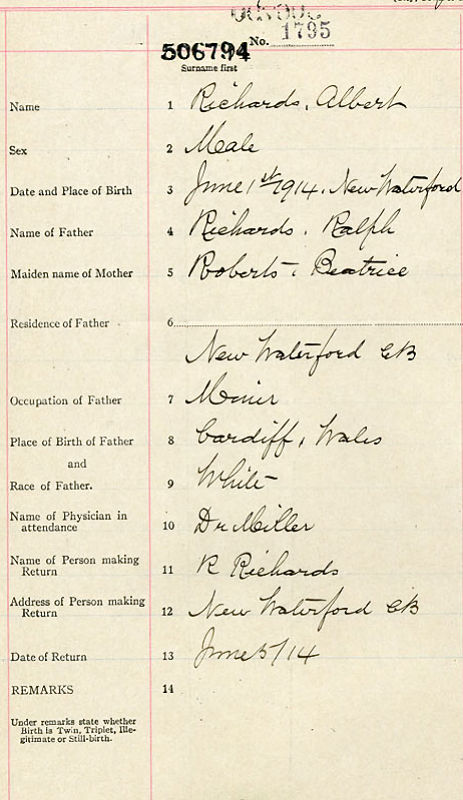 No. 1795
506794
Surname first
Name 1 Richards, Albert
Sex 2 Male
Date and Place of Birth 3 June 1st 1914. New Waterford
Name of Father 4 Richards. Ralph
Maiden name of Mother 5 Roberts. Beatrice
Residence of Father 6
New Waterford CB
Occupation of Father 7 Miner
Place of Birth of Father 8 Cardiff, Wales
and
Race of Father. 9 White
Name of Physician in
attendance 10 Dr Miller
Name of Person making
Return 11 R Richards
Address of Person making
Return 12 New Waterford CB
Date of Return 13 June 5/14
REMARKS 14
Under remarks state whether
Birth is Twin, Triplet, Ille-
gitimate or Still-birth.